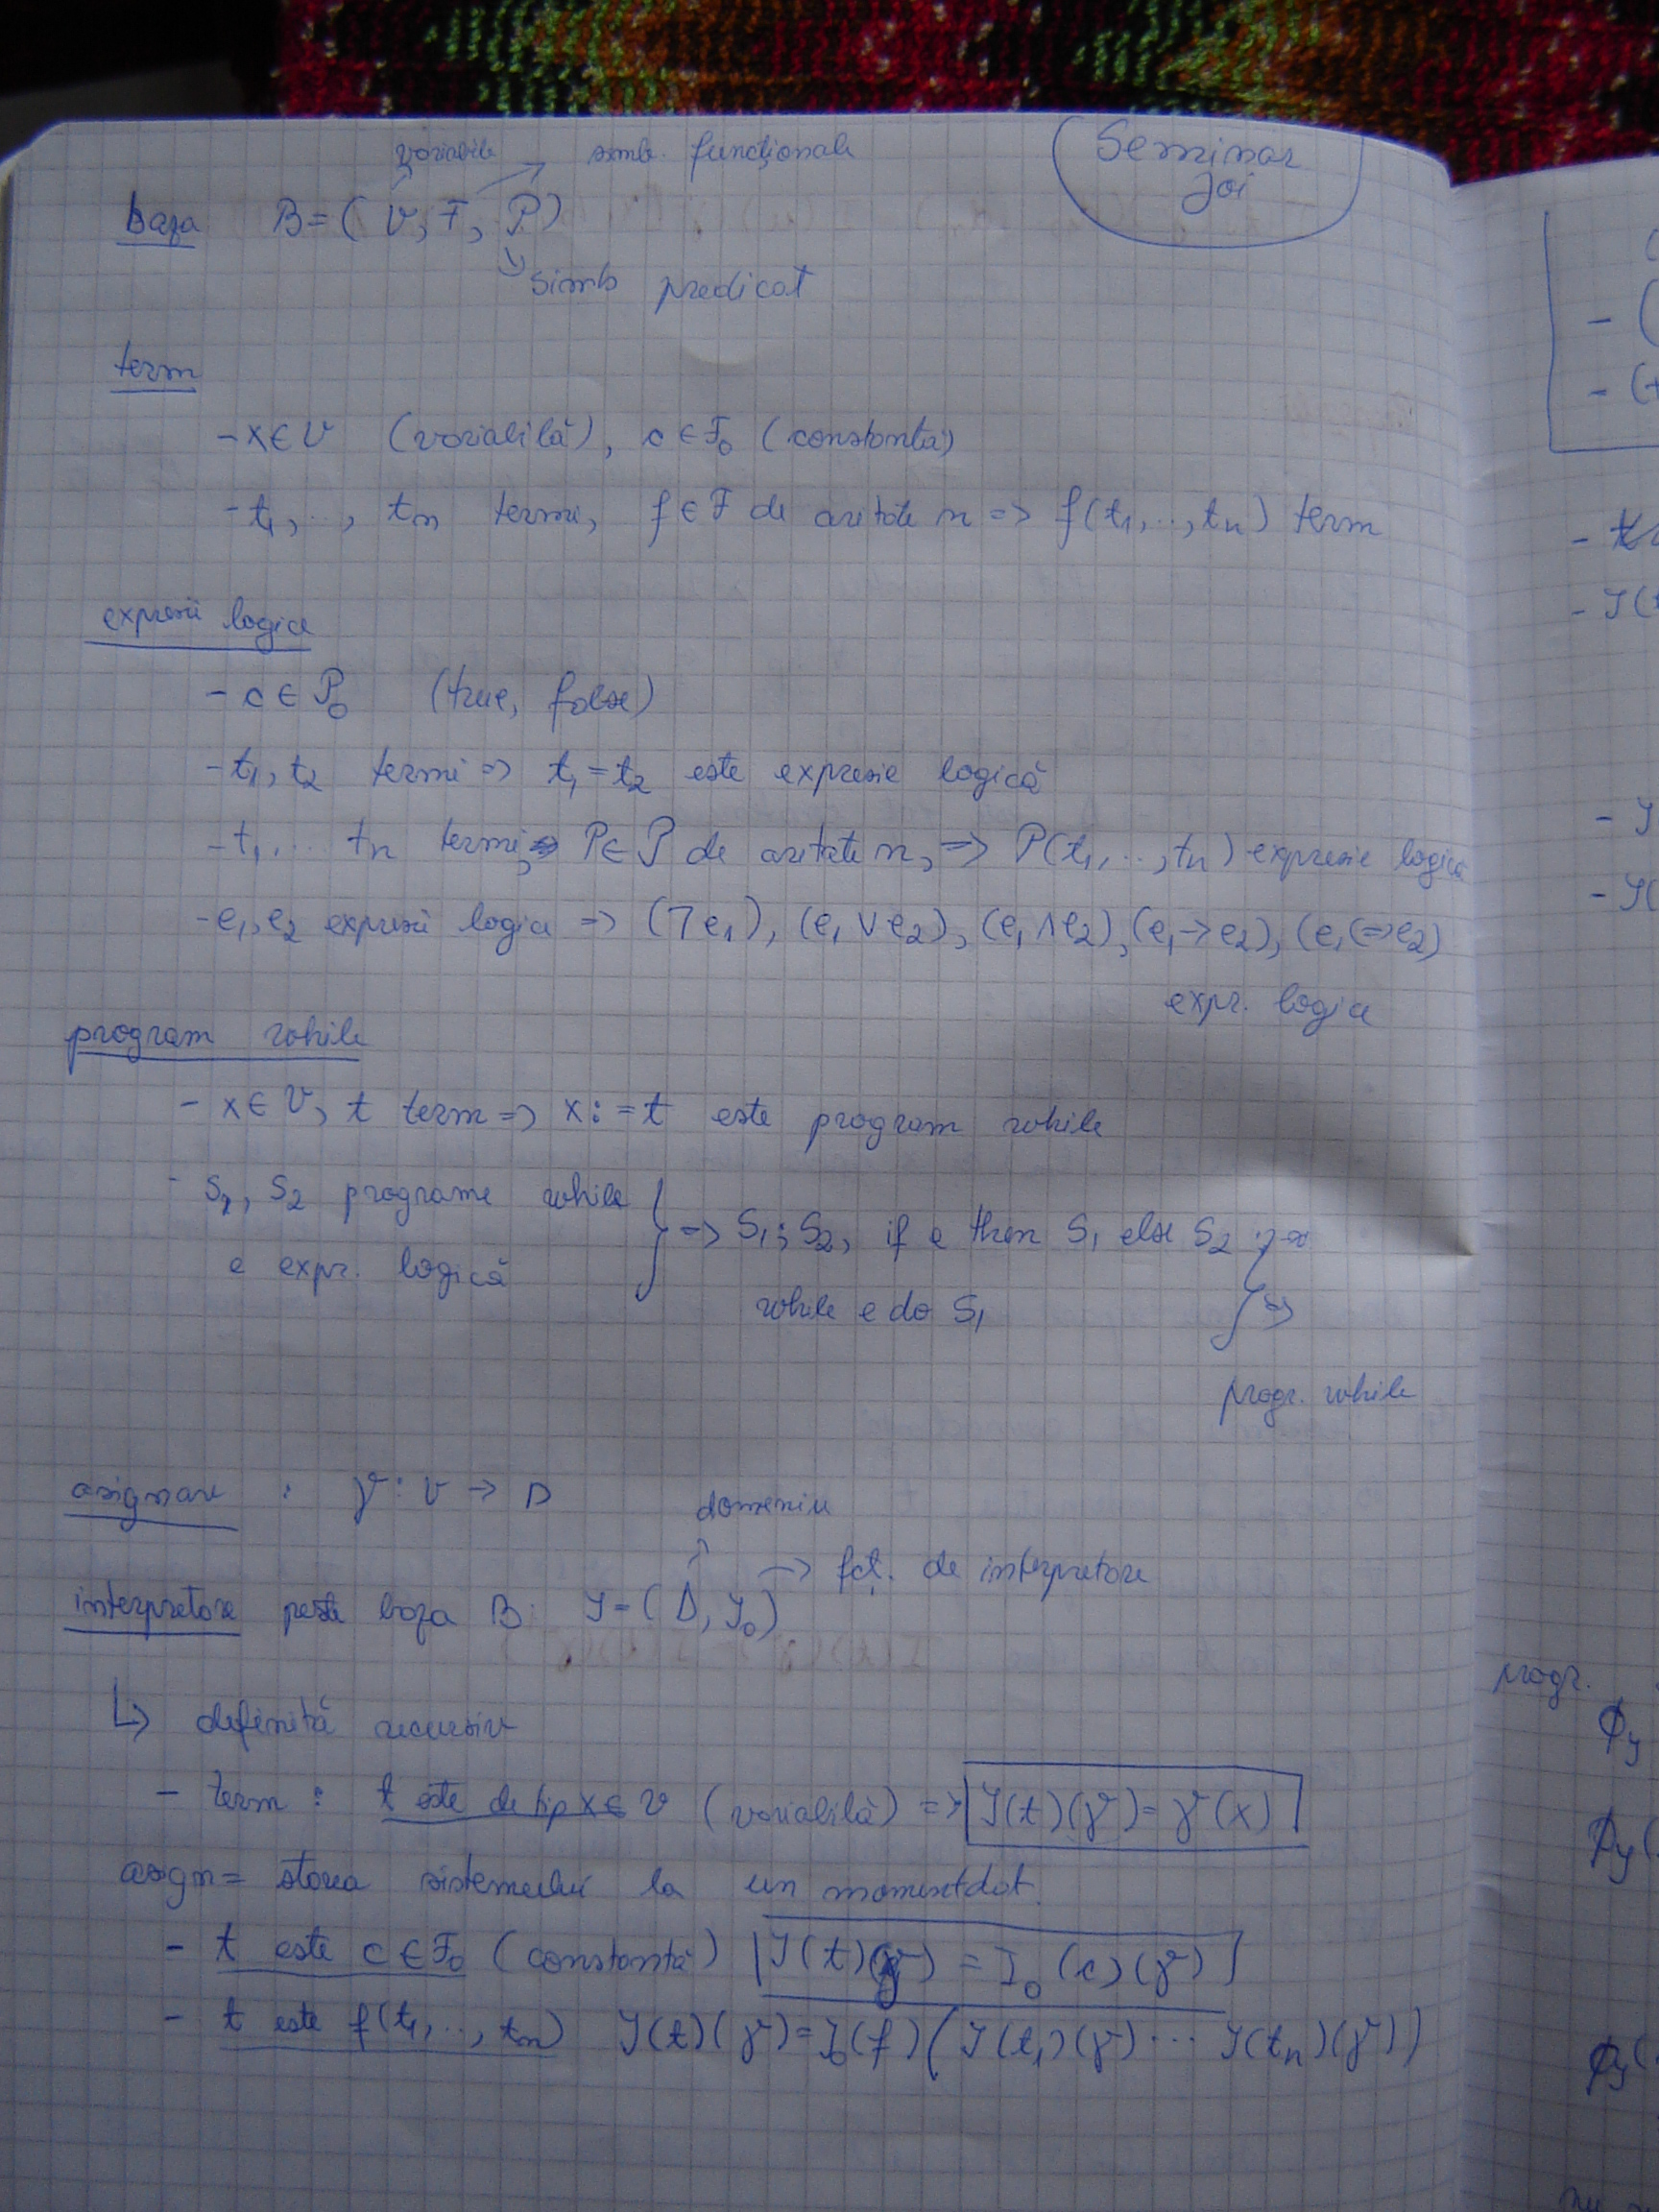 variabile simb. funcționale
Seminar
Joi
baza B=(V, F, P)
simb predicat
term
- x∈V (variabilă), c∈F₀ (constantă)
- t₁, .., tₙ termi, f∈F de aritate n => f(t₁, .., tₙ) term
expresii logice
- c∈P₀ (true, false)
- t₁, t₂ termi => t₁=t₂ este expresie logică
- t₁, .. tₙ termi, P∈P de aritate n, => P(t₁, .., tₙ) expresie logică
- e₁, e₂ expresii logice => (⏋e₁), (e₁∨e₂), (e₁∧e₂), (e₁->e₂), (e₁<=>e₂)
expr. logice
program while
- x∈V, t term => x:=t este program while
- S₁, S₂ programe while
e expr. logică
} => S₁; S₂, if e then S₁ else S₂
while e do S₁
} =>
progr. while
asignare : γ: V -> D
domeniu
-> fct. de interpretare
interpretare peste baza B: I=(D, I₀)
↳ definită recursiv
- term: t este de tip x∈V (variabilă) => I(t)(γ)=γ(x)
asign= starea sistemului la un momentdat.
- t este c∈F₀ (constantă) I(t)(γ) = I₀(c)(γ)
- t este f(t₁, .., tₙ) I(t)(γ)=I₀(f)(I(t₁)(γ) ... I(tₙ)(γ))
progr.